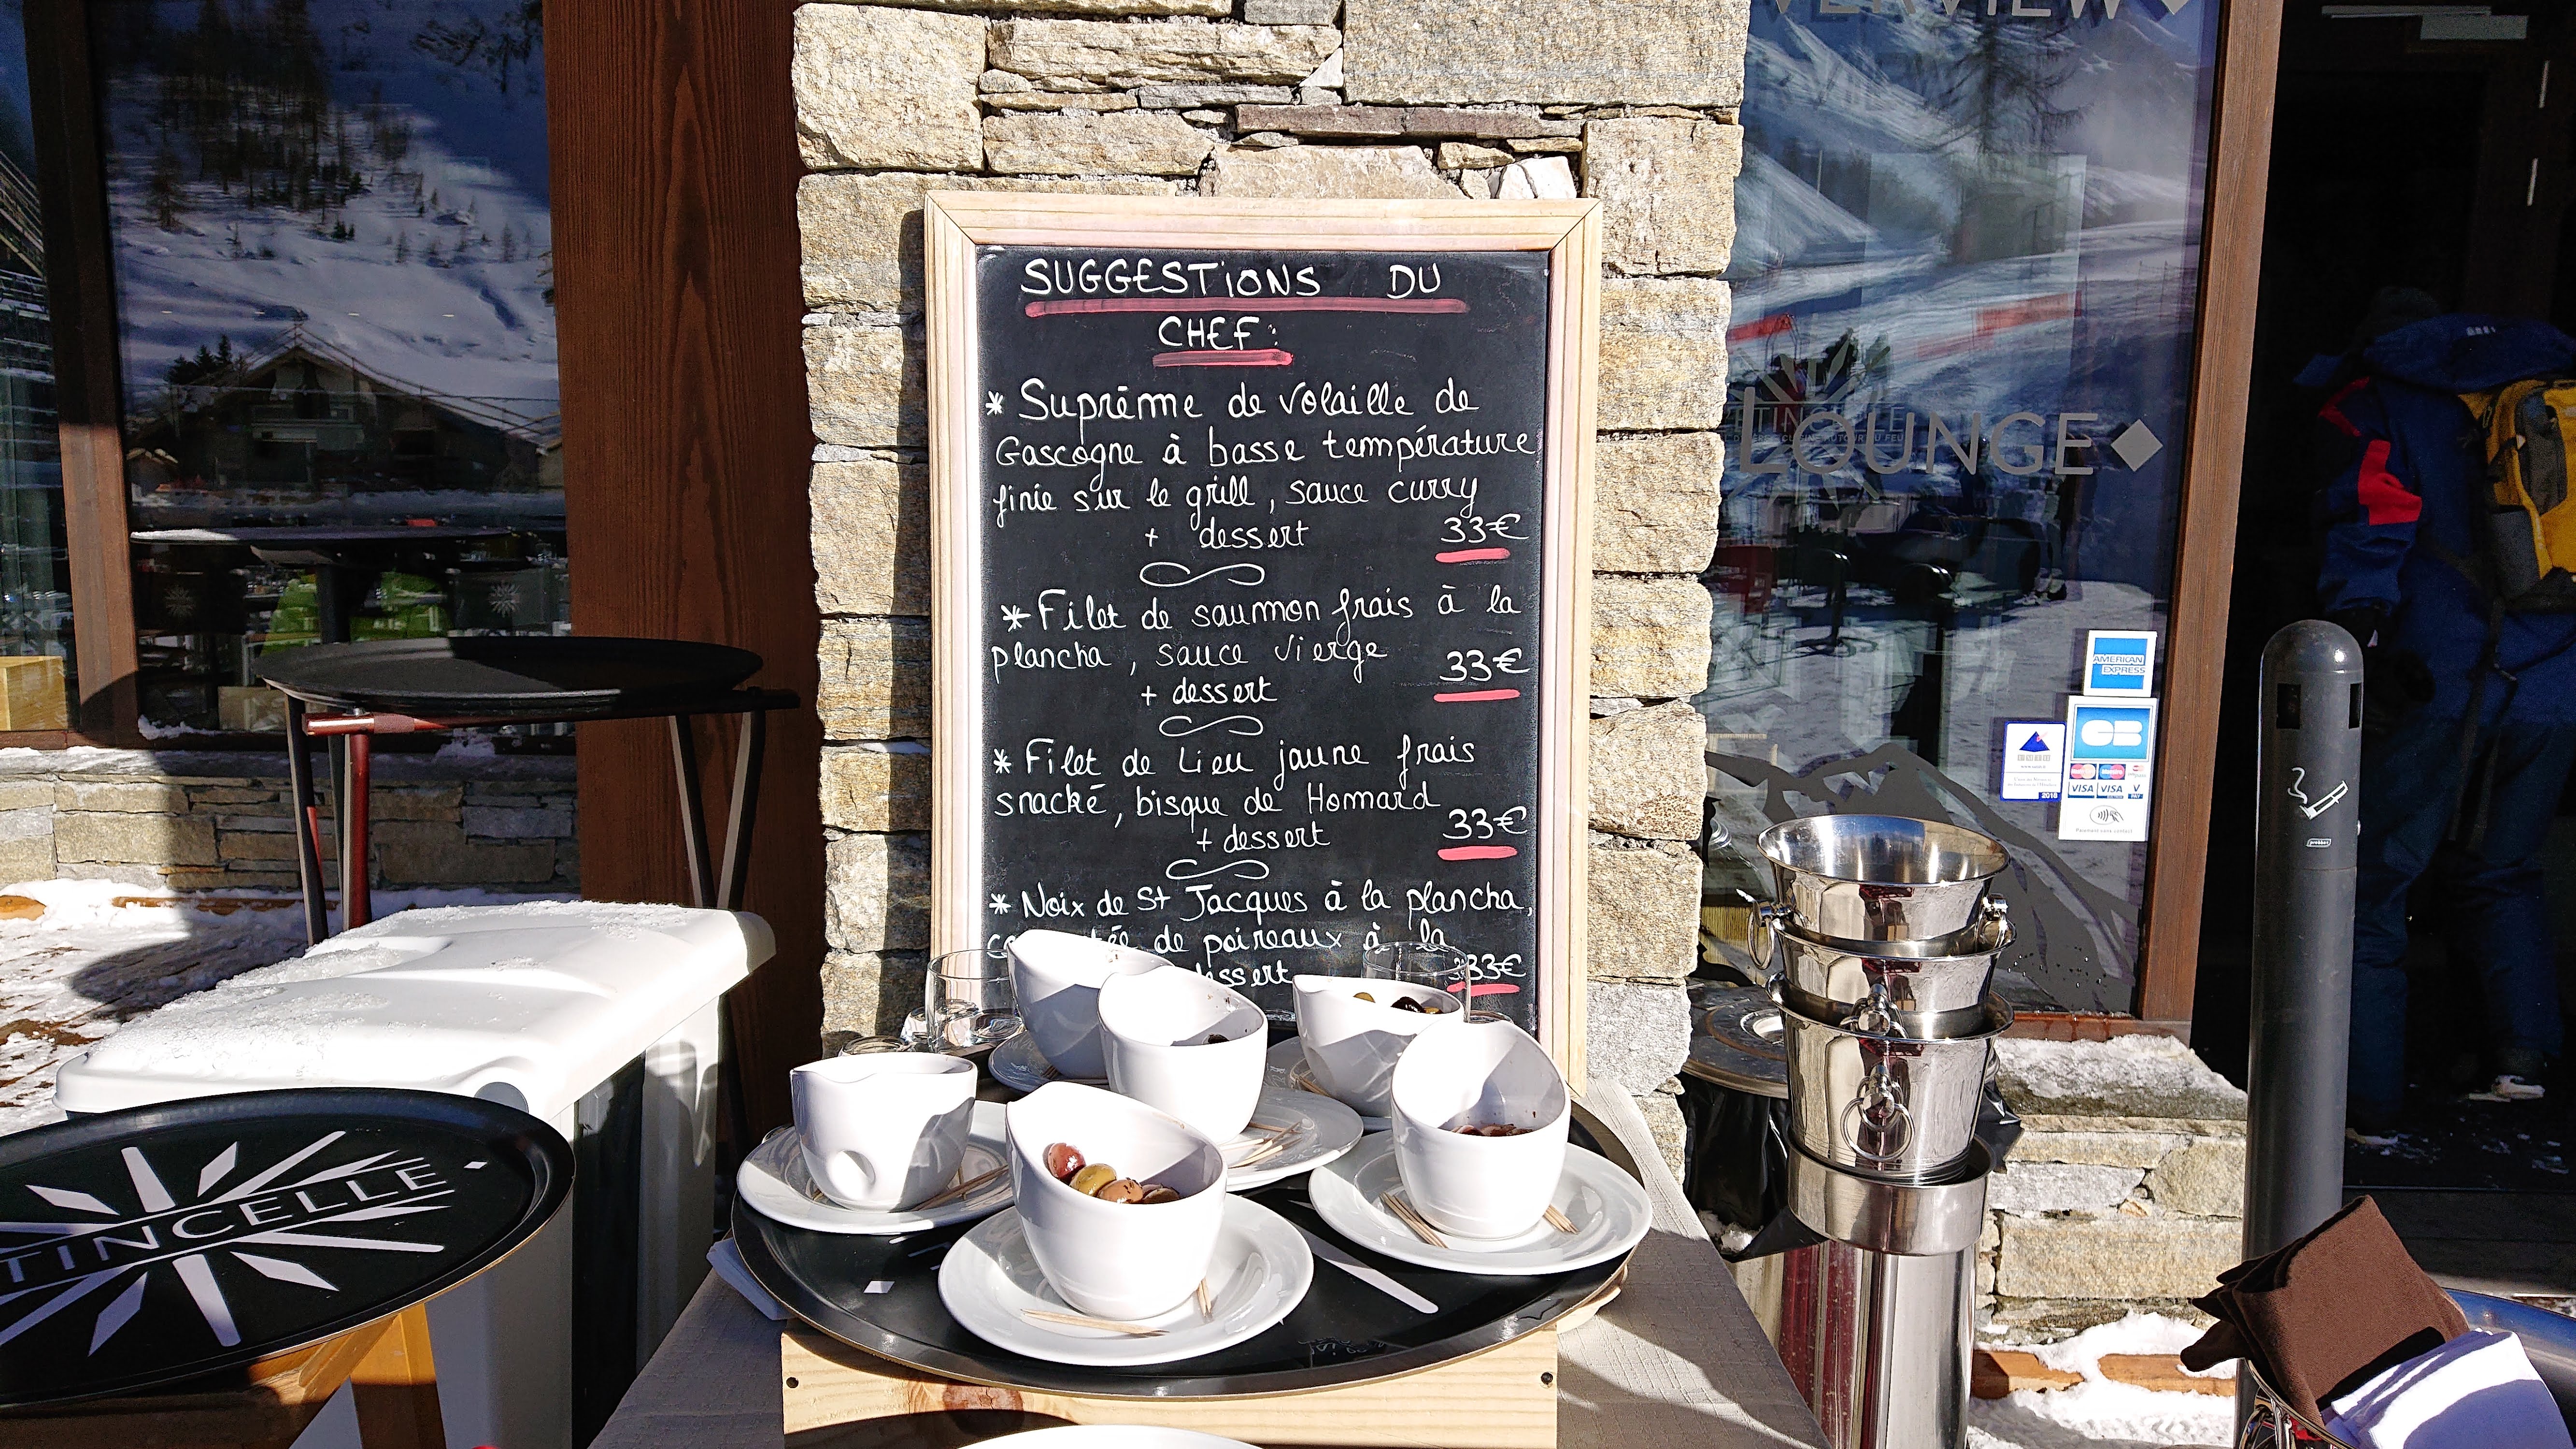 SUGGESTIONS DU
CHEF:
* Suprême de volaille de
Gascogne à basse température
finie sur le grill, sauce curry
+ dessert 33€
* Filet de saumon frais à la
plancha, sauce vierge 33€
+ dessert
* Filet de Lieu jaune frais
snacké, bisque de Homard
+ dessert 33€
* Noix de St Jacques à la plancha,
de poireaux à la
33€
LOUNGE
AMERICAN
EXPRESS
CB
VISA VISA V PAY
2018
TINCELLE